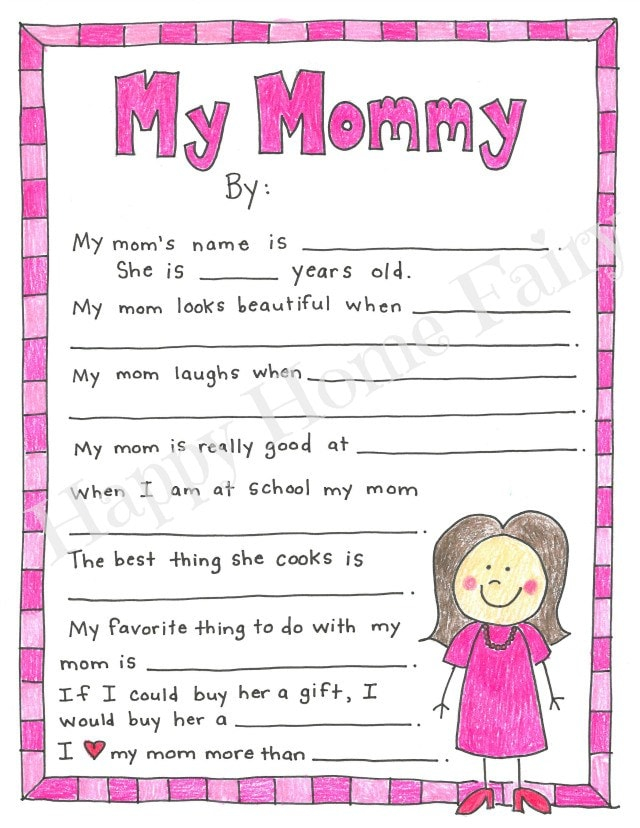 My Mommy
By:
My mom's name is ____________________.
She is ______ years old.
My mom looks beautiful when ____________
________________________________________.
My mom laughs when ____________________
________________________________________.
My mom is really good at ______________.
When I am at school my mom
____________________________.
The best thing she cooks is
____________________________.
My favorite thing to do with my
mom is ______________________.
If I could buy her a gift, I
would buy her a ______________.
I ♥ my mom more than __________.
Happy Home Fairy